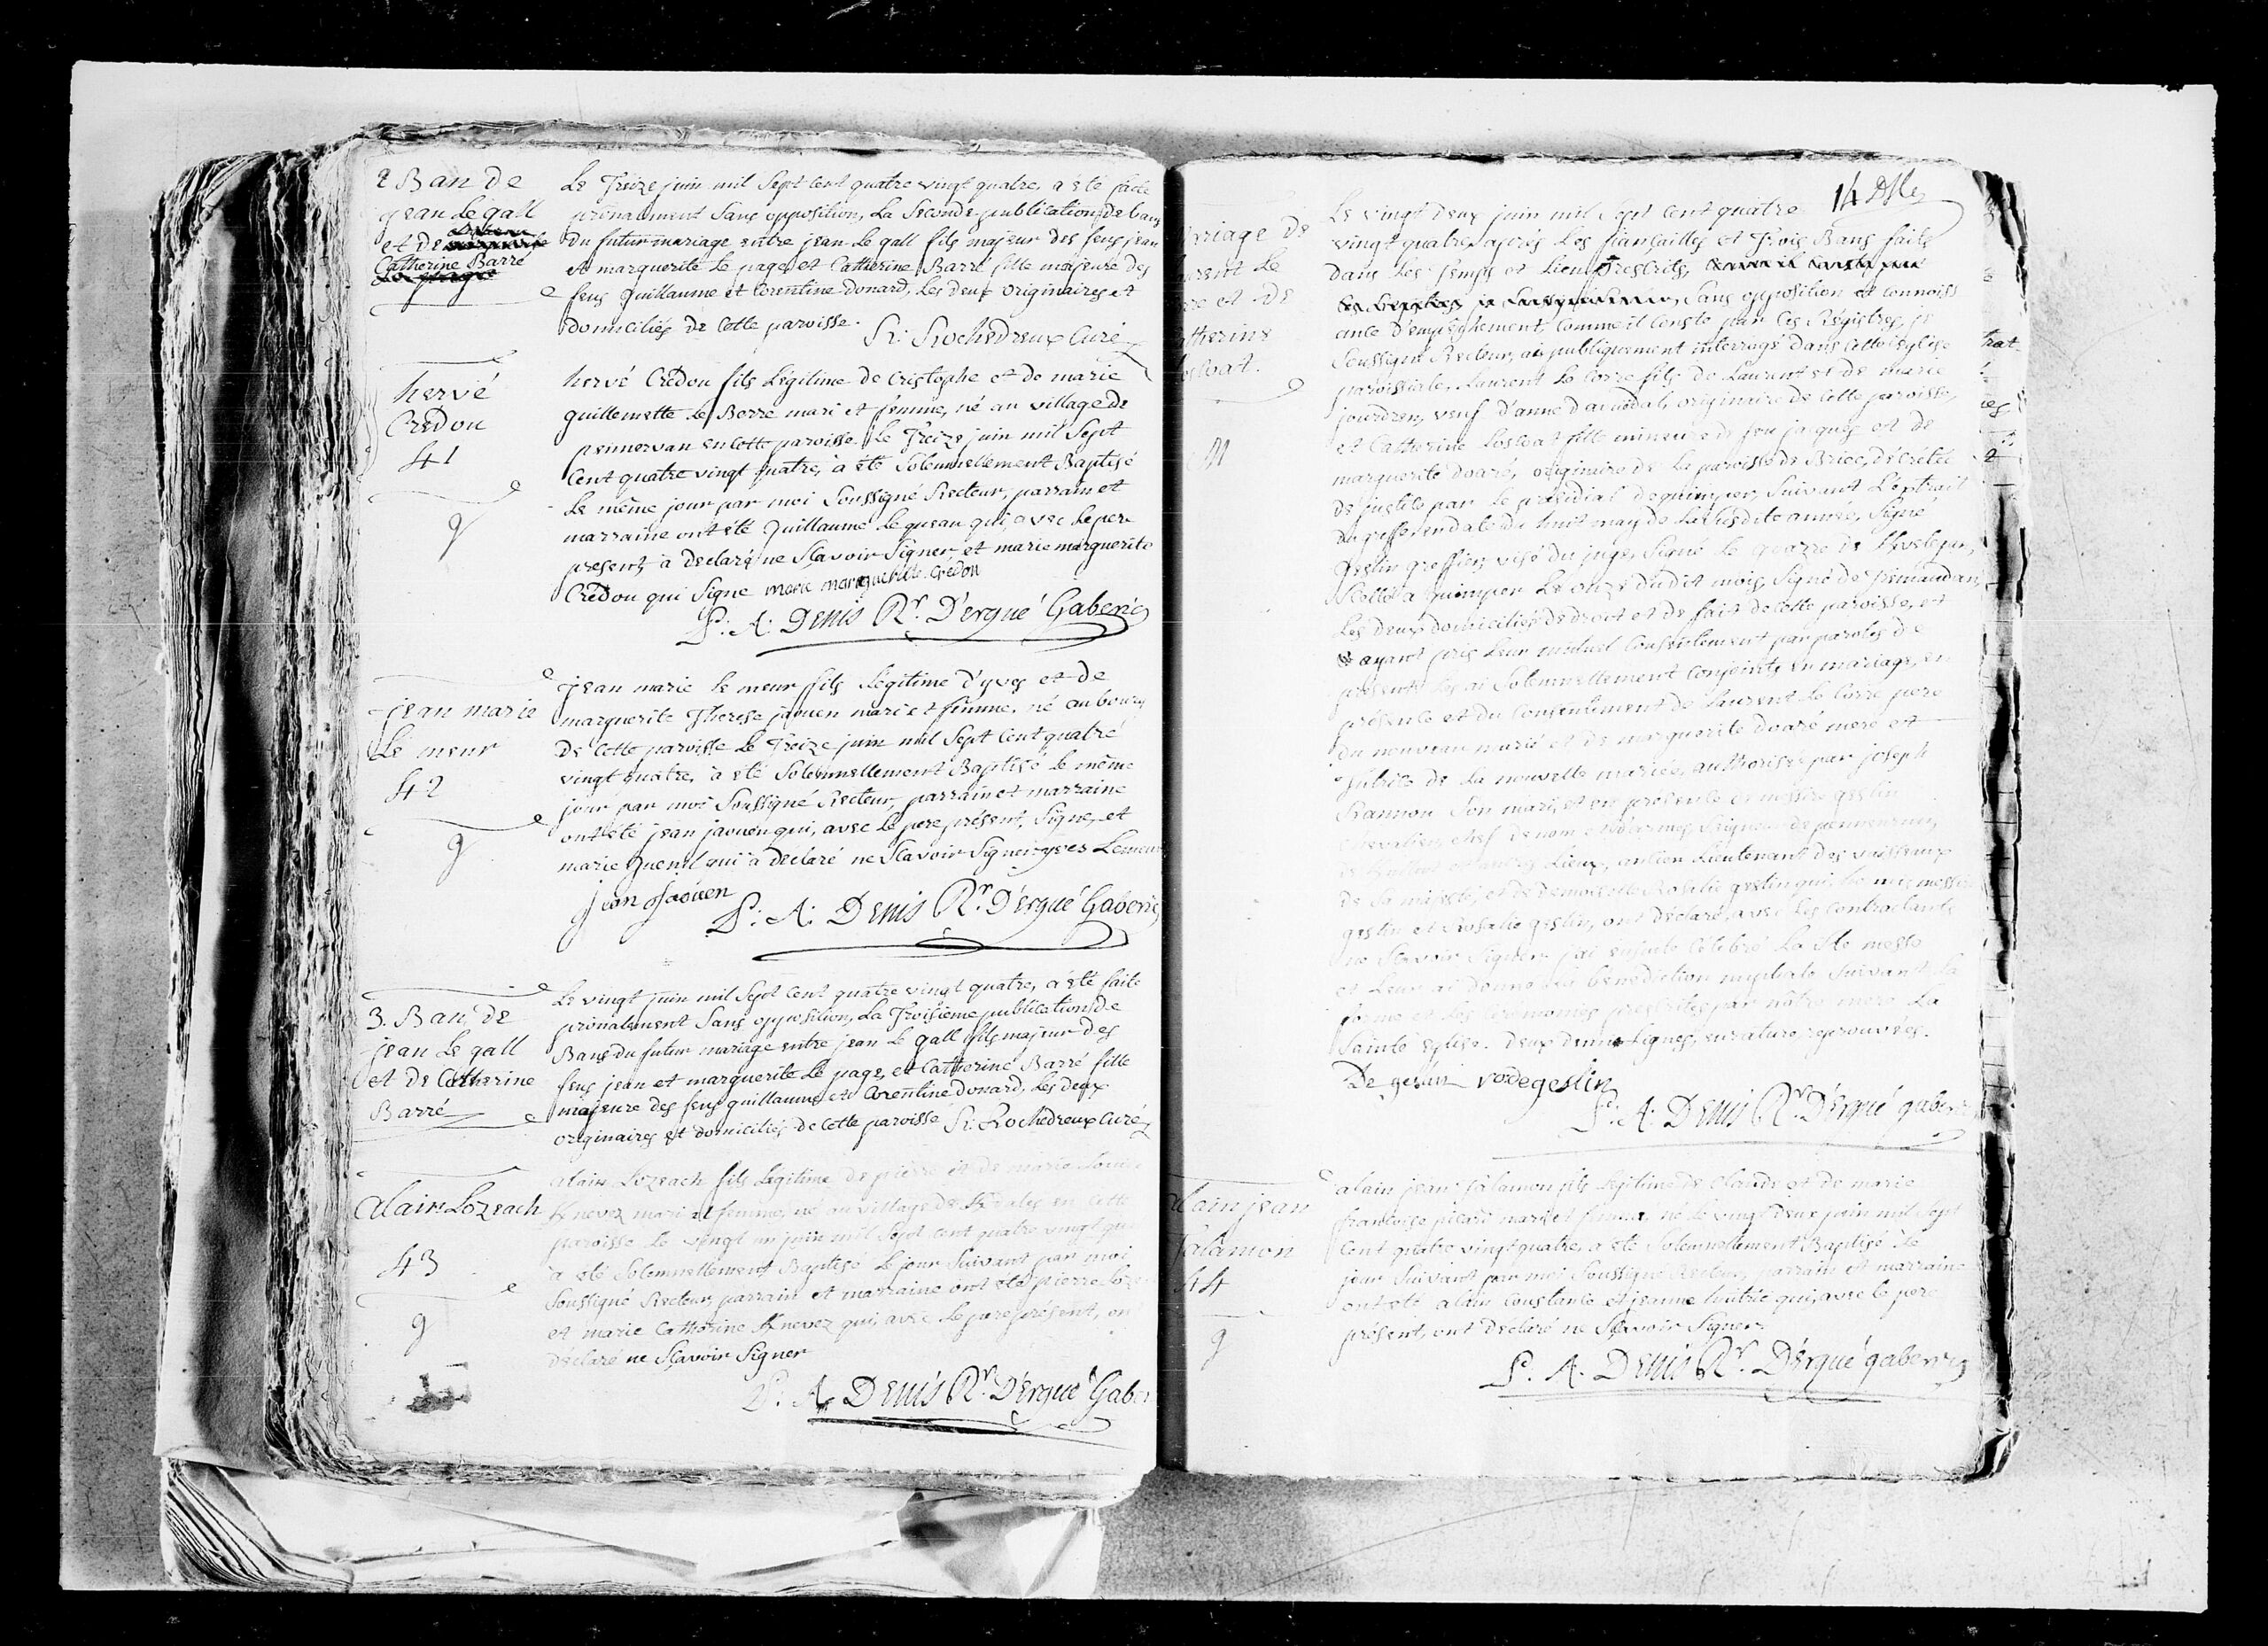 2 Ban de
jean Le gall
et de
Catherine Barré
Le Treize juin mil Sept Cent quatre vingt quatre, a été faite
prônalement Sans opposition, La Seconde publication de bans
du futur mariage entre jean Le gall fils majeur des feus jean
et marguerite Le page, et Catherine Barré fille majeure des
feus guillaume et Corentine donard, Les deux originaires et
domiciliés de Cette paroisse.
R: Rochedreux Curé
hervé
Credou
41
g
hervé Credou fils Légitime de Cristophe et de marie
guillemette Le Berre mari et femme, né au village de
pennervan en Cette paroisse Le Treize juin mil Sept
Cent quatre vingt quatre, à été Solemnellement Baptisé
Le même jour par moi Soussigné Recteur, parrain et
marraine ont été guillaume Le gueau qui, avec Le pere
present, à declaré ne Scavoir Signer, et marie marguerite
Credou qui Signe marie marguerite Credou
P: A: Denis Rr. D'ergué Gaberic
jean marie
Le meur
42
g
jean marie Le meur fils Légitime d'yves et de
marguerite Therese jaouen mari et femme, né au bourg
de Cette paroisse Le Treize juin mil Sept Cent quatre
vingt quatre, à été Solemnellement Baptisé Le même
jour par moi Soussigné Recteur, parrain et marraine
ont été jean jaouen qui, avec Le pere présent, Signe, et
marie quenil qui à declaré ne Scavoir Signer yves Lemeur
jean Jaouen
P: A: Denis Rr. D'ergué Gaberic
3. Ban de
jean Le gall
et de Catherine
Barré
Le vingt juin mil Sept Cent quatre vingt quatre, a été faite
prônalement Sans opposition, La Troisieme publication de
Bans du futur mariage entre jean Le gall fils majeur des
feus jean et marguerite Le page, et Catherine Barré fille
majeure des feus guillaume et Corentine donard, Les deux
originaires et domiciliés de Cette paroisse R: Rochedreux Curé
alain Lozeach
43
g
alain Lozeach fils Légitime de pierre et de marie Louise
Knevez mari et femme, né au village de en Cette
paroisse Le vingt un juin mil Sept Cent quatre vingt
à été Solemnellement Baptisé Le jour Suivant par moi
Soussigné Recteur, parrain et marraine ont été pierre
et marie Catherine Knevez qui, avec Le pere présent, ont
déclaré ne Sçavoir Signer
P: A: Denis Rr. D'ergué Gaber
14
riage de
Le
et de
therine
g
Le vingt deux juin mil Sept Cent quatre
vingt quatre, aprés Les fiançailles et Trois Bans faits
dans Les Temps et Lieux prescrits, Sans opposition et connoiss
ance d'empêchement, Comme il Conste par Ces Régistres, je
Soussigné Recteur, ai publiquement interrogé dans Cette église
paroissiale, Laurent Le Corre fils de Laurent et de marie
jourdren, veuf d'anne originaire de Cette paroisse,
et Catherine fille mineure de feu jacques et de
marguerite doaré, originaire de La paroisse de Briec, décrétée
de justice par Le présidial de quimper, Suivant L'extrait
du greffe en date du huit may de La Susdite année, Signé
geslin greffier, visé du juge, Signé Le
Scellé à quimper Le onze dudit mois, Signé de
Les deux domiciliés de droit et de fait de Cette paroisse, et
ayant pris Leur mutuel Consentement par paroles de
présent, Les ai Solemnellement Conjoints en mariage, en
présence et du Consentement de Laurent Le Corre pere
du nouveau marié et de marguerite doaré mere et
tutrice de La nouvelle mariée, authorisée par joseph
Rannou Son mari, et en présence messire geslin
chevalier, chef de nom et d'armes, Seigneur de
Lieux, ancien Lieutenant des vaisseaux
de Sa majesté, et de demoiselle Rosalie geslin qui,
geslin et Rosalie geslin, ont déclaré avec Les Contractants
ne Sçavoir Signer. j'ai ensuite Célébré La Ste messe
et Leur ai donné La bénédiction nuptiale Suivant La
forme et Les Ceremonies prescrites par nôtre mere La
Sainte église. deux demie Lignes, en rature, reprouvées.
De geslin
P: A: Denis Rr. D'ergué gaberic
alain jean
44
g
alain jean fils Légitime de Claude et de marie
françoise picard mari et femme, né Le vingt deux juin mil Sept
Cent quatre vingt quatre, a été Solemnellement Baptisé Le
jour Suivant par moi Soussigné Recteur, parrain et marraine
ont été alain Constance et jeanne qui, avec Le pere
présent, ont declaré ne Sçavoir Signer.
P. A. Denis Rr. D'ergué gaberic